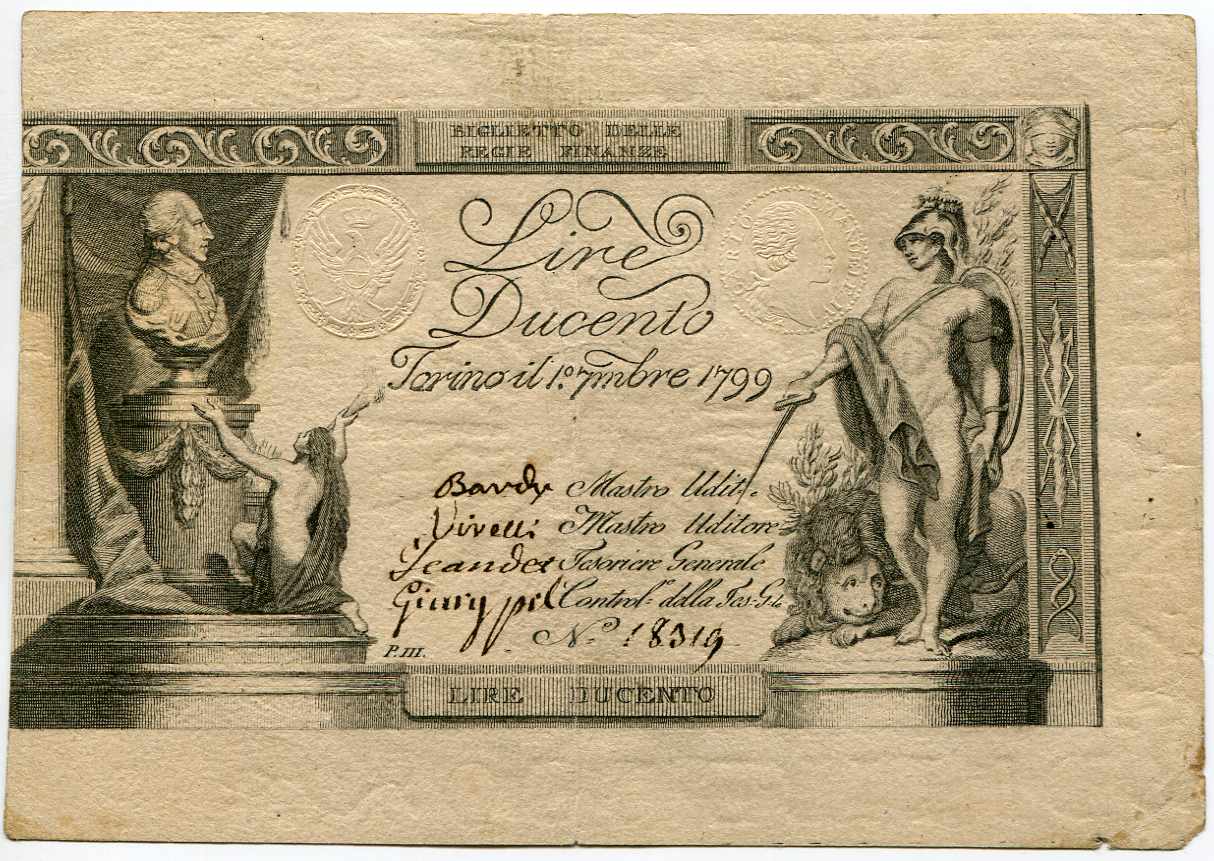 BIGLIETTO DELLE
REGIE FINANZE
Lire
Ducento
Torino il 1.º 7mbre 1799
Mastro Udit.e
Vivelli Mastro Uditore
Tesoriere Generale
Control.r della Tes. G.le
N.º 18319
P. III.
LIRE DUCENTO